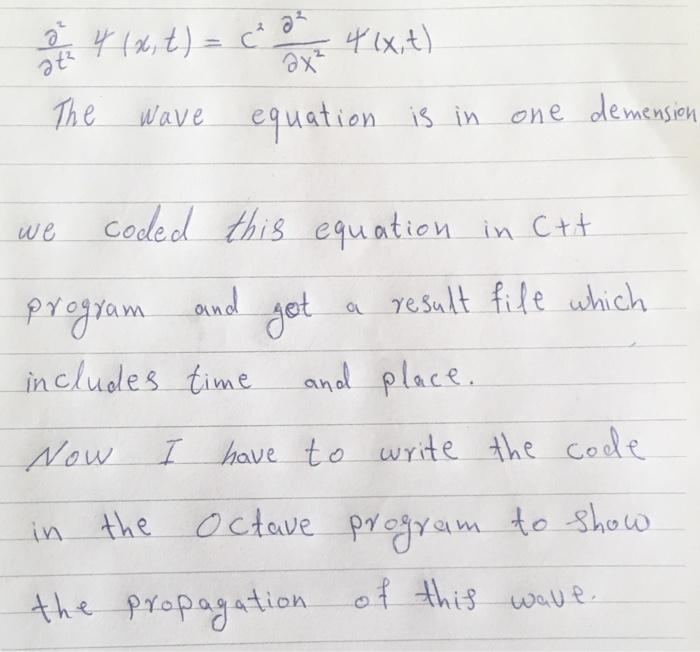 ∂²/∂t² Ψ(x,t) = c² ∂²/∂x² Ψ(x,t)
The wave equation is in one demension
we coded this equation in C++
program and got a result file which
includes time and place.
Now I have to write the code
in the Octave program to show
the propagation of this wave.